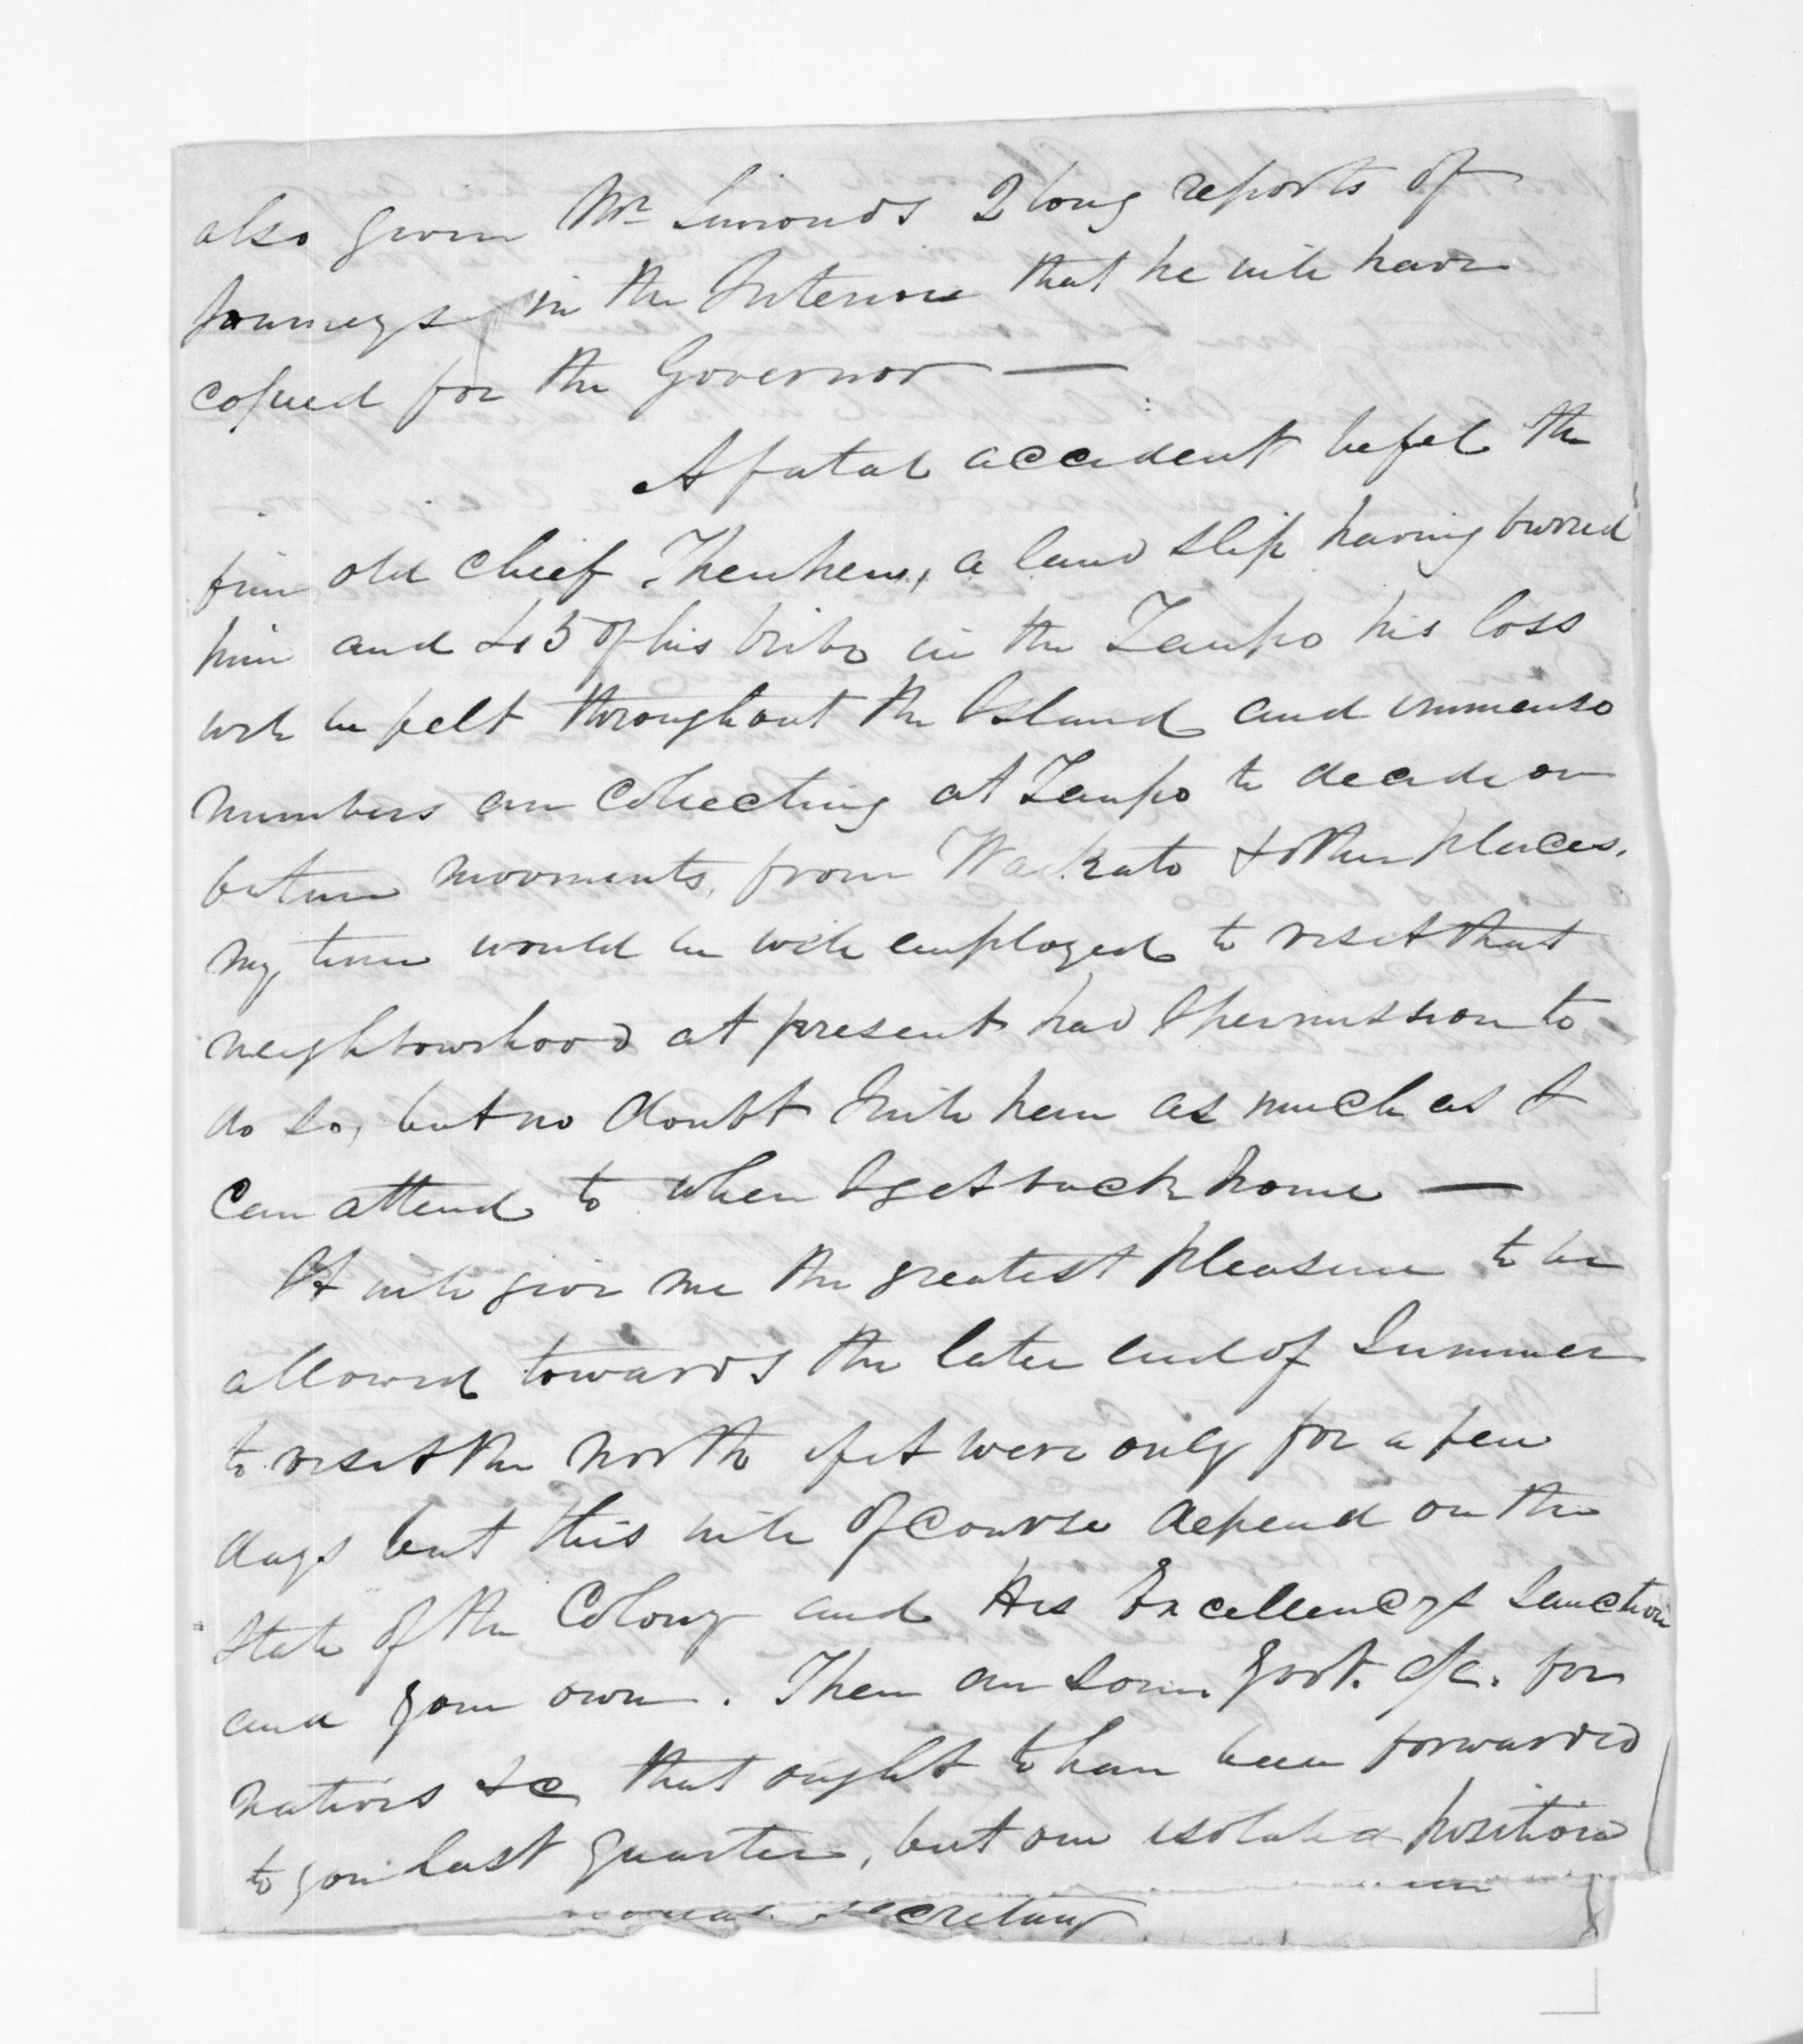 also given Mr Simonds 2 long reports of
Journeys in the Interior that he will have
copied for the Governor —
A fatal accident befel the
fine old chief Theuheu, a land slip having burried
him and 45 of his tribe in the Taupo his loss
will be felt throughout the Island and immense
numbers are collecting at Taupo to decide on
future movments, from Waikato & other places.
my time would be well employed to visit that
neighbourhood at present had I permission to
do so, but no doubt I will have as much as I
can attend to when I get back home —
It will give me the greatest pleasure to be
allowed towards the later end of Summer
to visit the North if it were only for a few
days but this will of course depend on the
state of the Colony and His Excellencys Sanction
and your own. There are some Govt. a/c. for
natives &c that ought to have been forwarded
to you last quarter, but our isolated position
Secretary